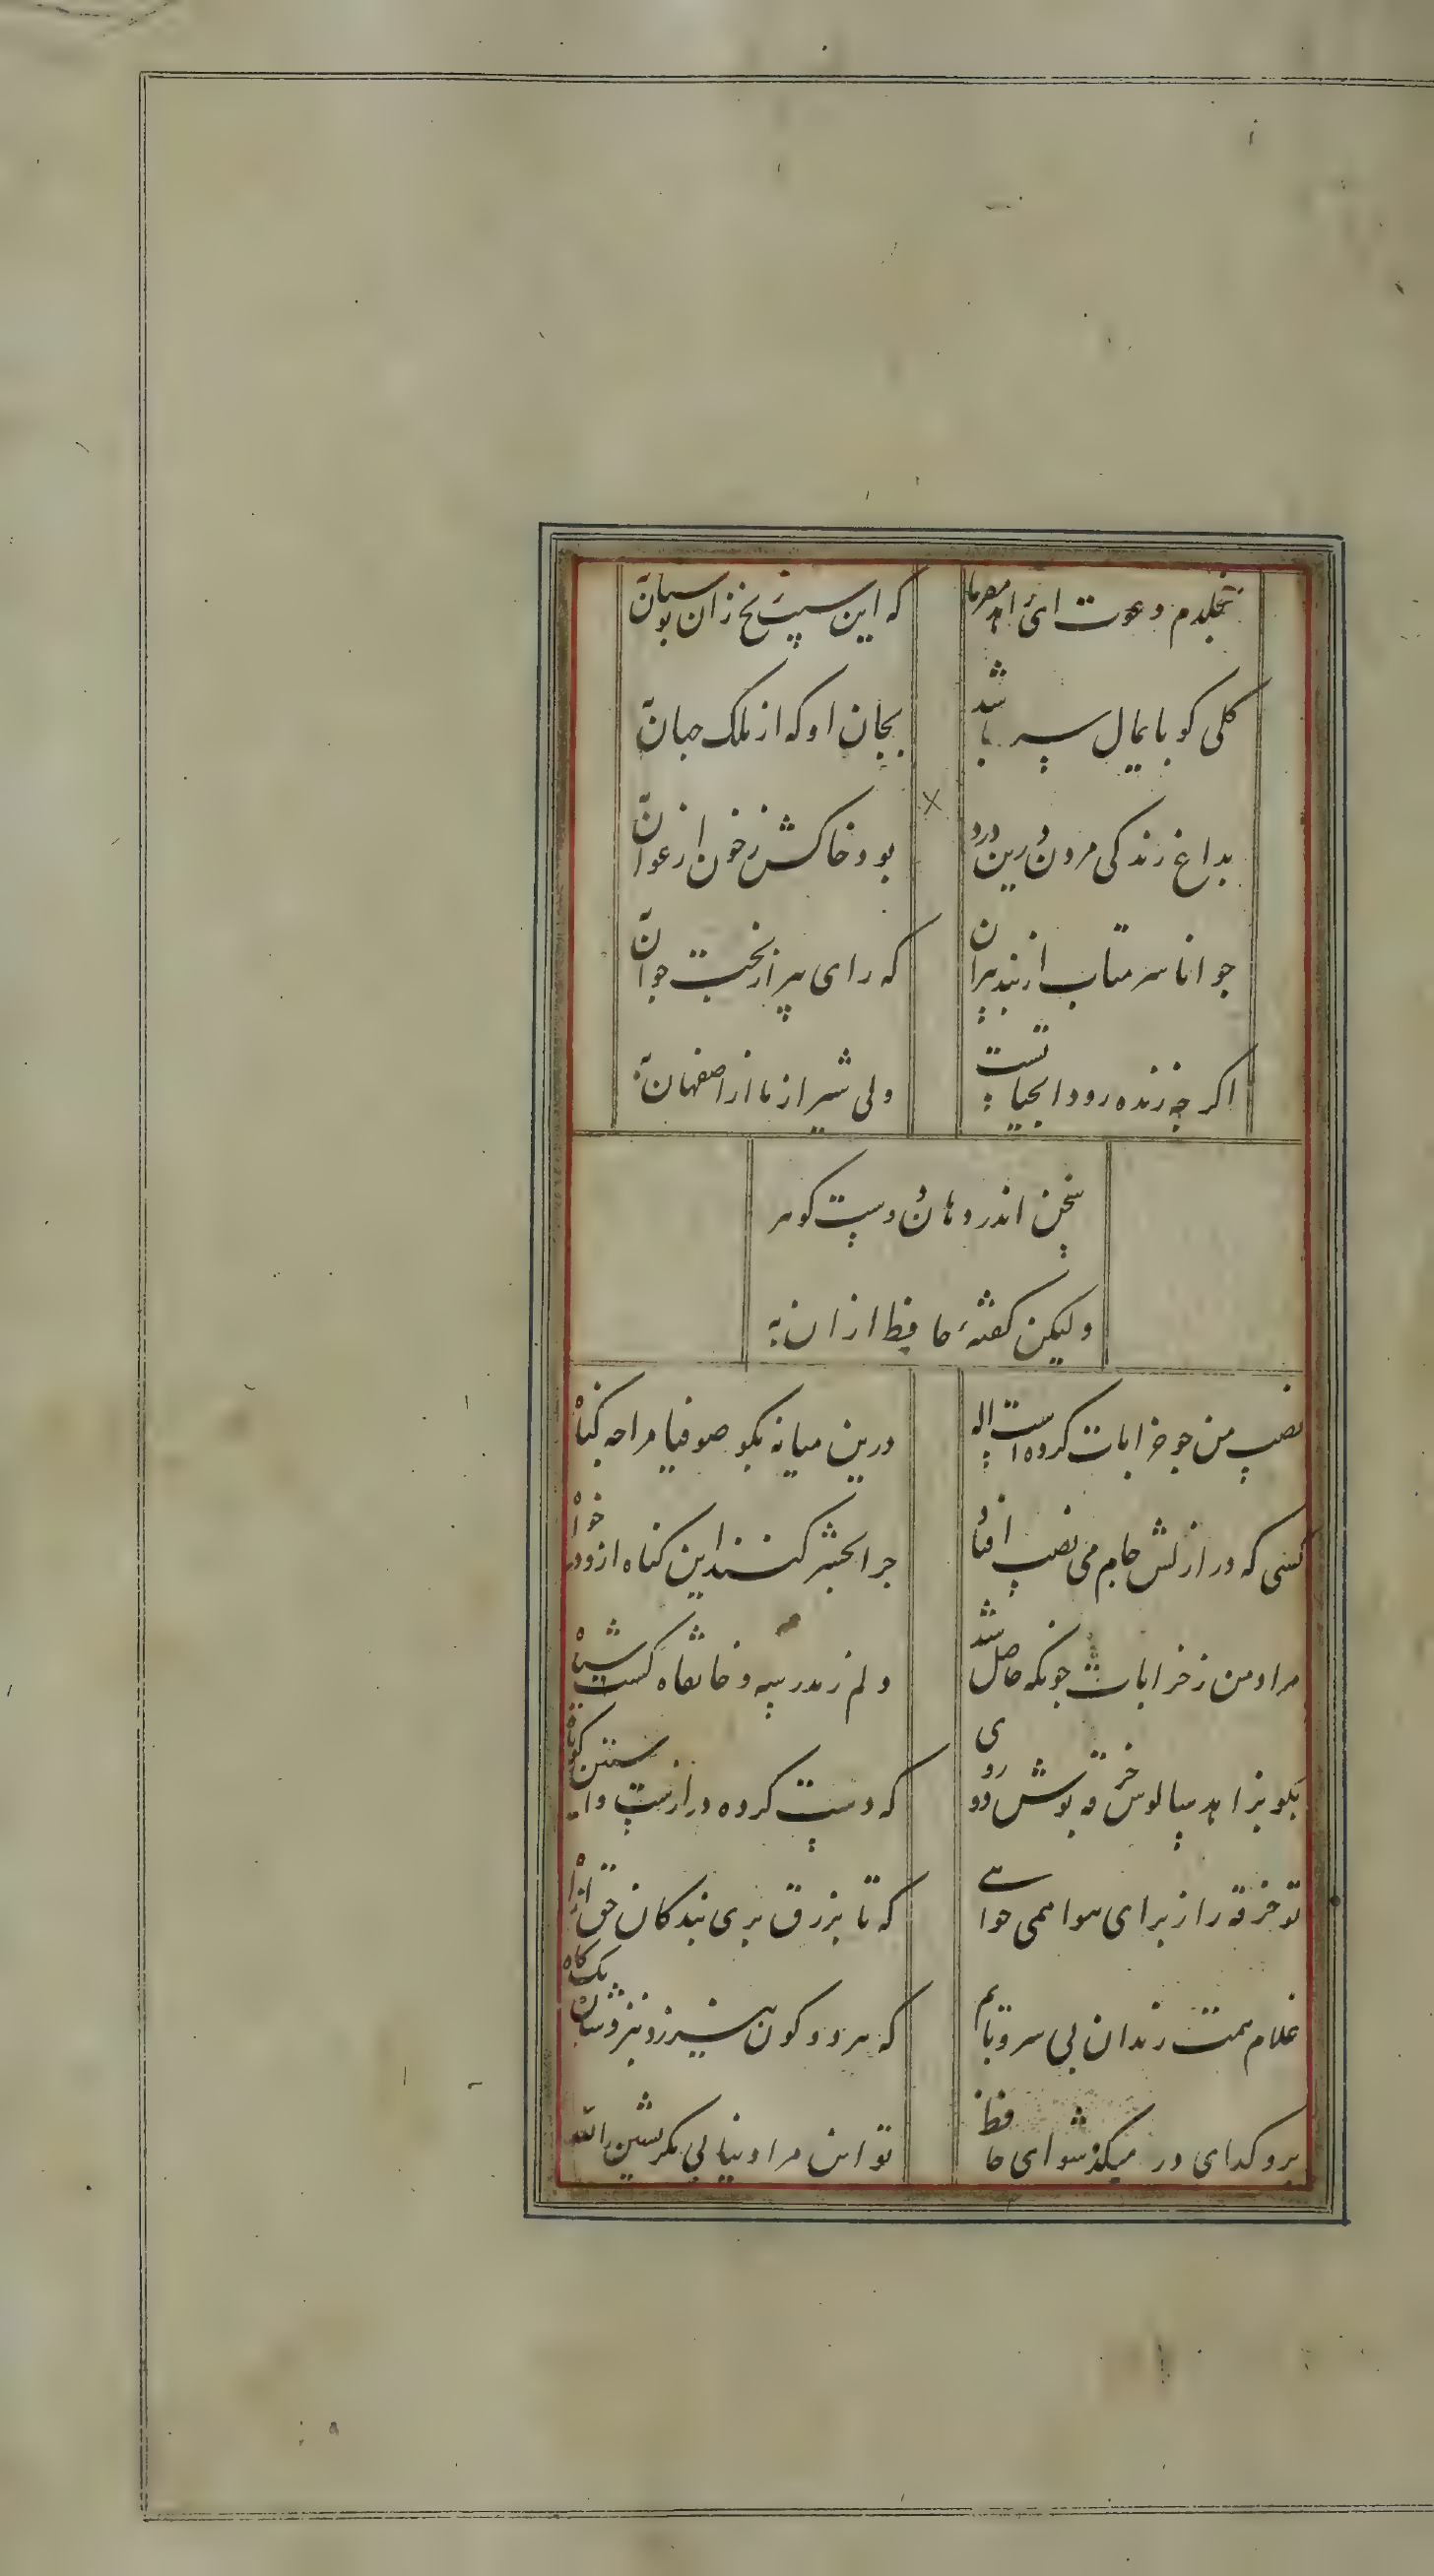 بخلدم دعوت ای زاهد مفرما
که این سیب زنخ زان بوستان به
کلی کو بایمال سر باشد
بجان او که از ملک جهان به
بداغ زندکی مردن درین درد
بود خاکش ز خون ارغوان به
جوانا سر متاب از بند بیران
که رای بیر از بخت جوان به
اکر جه زنده رود ابحیاتست
ولی شیراز ما از اصفهان به
سخن اندر دهان دوست کوهر
ولیکن کفته حافظ ازان به
نصیب من جو خرابات کرده است اله
درین میانه بکو صوفیا مرا جه کناه
کسی که در ازلش جام می نصیب افتاد
جرا بحشر کنند این کناه ازو در خواه
مراد من ز خرابات جونکه حاصل شد
دلم ز مدرسه و خانقاه کشت سیاه
بکو بزاهد سالوس خرقه بوش دو روی
که دست کرده درازست و استین کوتاه
تو خرقه را ز برای هوا همی خواهی
که تا بزرق بری بندکان حق از راه
غلام همت رندان بی سر و بایم
که هر دو کون نیرزد بنزدشان یک کاه
برو کدای در میکده شو ای حافظ
تو این مراد نیابی مکر بشیئ الله